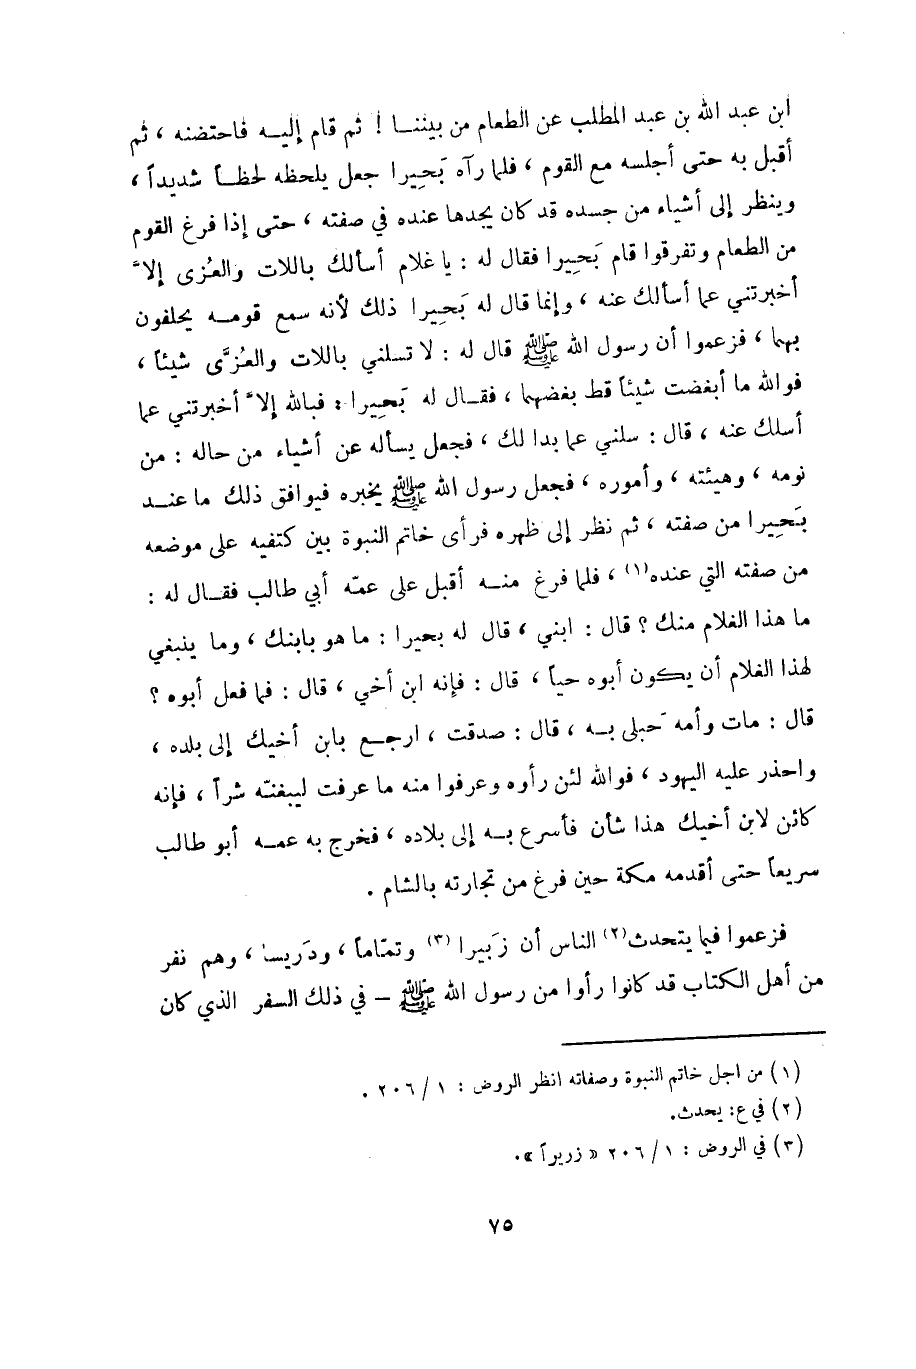 ابن عبد الله بن عبد المطلب عن الطعام من بيننا ! ثم قام إليه فاحتضنه ، ثم
أقبل به حتى أجلسه مع القوم ، فلما رآه بَحِيرا جعل يلحظه لحظاً شديداً ،
وينظر إلى أشياء من جسده قد كان يجدها عنده في صفته ، حتى إذا فرغ القوم
من الطعام وتفرقوا قام بَحِيرا فقال له : يا غلام أسألك باللات والعُزى إلاَّ
أخبرتني عما أسألك عنه ، وإنما قال له بَحِيرا ذلك لأنه سمع قومه يحلفون
بهما ، فزعموا أن رسول الله ﷺ قال له : لا تسلني باللات والعُزَّى شيئاً ،
فوالله ما أبغضت شيئاً قط بغضهما ، فقال له بَحِيرا : فبالله إلاَّ أخبرتني عما
أسلك عنه ، قال : سلني عما بدا لك ، فجعل يسأله عن أشياء من حاله : من
نومه ، وهيئته ، وأموره ، فجعل رسول الله ﷺ يخبره فيوافق ذلك ما عند
بَحِيرا من صفته ، ثم نظر إلى ظهره فرأى خاتم النبوة بين كتفيه على موضعه
من صفته التي عنده(١) ، فلما فرغ منه أقبل على عمّه أبي طالب فقال له :
ما هذا الغلام منك ؟ قال : ابني ، قال له بحيرا : ما هو بابنك ، وما ينبغي
لهذا الغلام أن يكون أبوه حياً ، قال : فإنه ابن أخي ، قال : فما فعل أبوه ؟
قال : مات وأمه حَبلى به ، قال : صدقت ، ارجع بابن أخيك إلى بلده ،
واحذر عليه اليهود ، فوالله لئن رأوه وعرفوا منه ما عرفت ليبغنّه شراً ، فإنه
كائن لابن أخيك هذا شأن فأسرع به إلى بلاده ، فخرج به عمه أبو طالب
سريعاً حتى أقدمه مكة حين فرغ من تجارته بالشام .
فزعموا فيما يتحدث(٢) الناس أن زَبيرا (٣) وتمّاماً ، ودَريسا ، وهم نفر
من أهل الكتاب قد كانوا رأوا من رسول الله ﷺ – في ذلك السفر الذي كان
(١) من اجل خاتم النبوة وصفاته انظر الروض : ١ / ٢٠٦ .
(٢) في ع: يحدث.
(٣) في الروض : ١ / ٢٠٦ « زريراً ».
٧٥